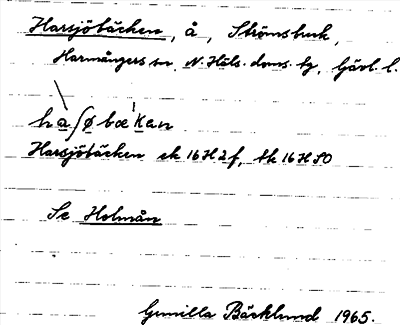 Harsjöbäcken, å, Strömsbruk,
Harmångers sn, N. Häls. doms. tg, Gävl. l.
ha∫øbäkan
Harsjöbäcken ek 16H2f, tk 16H SO
Se Holmån
Gunilla Bäcklund 1965.